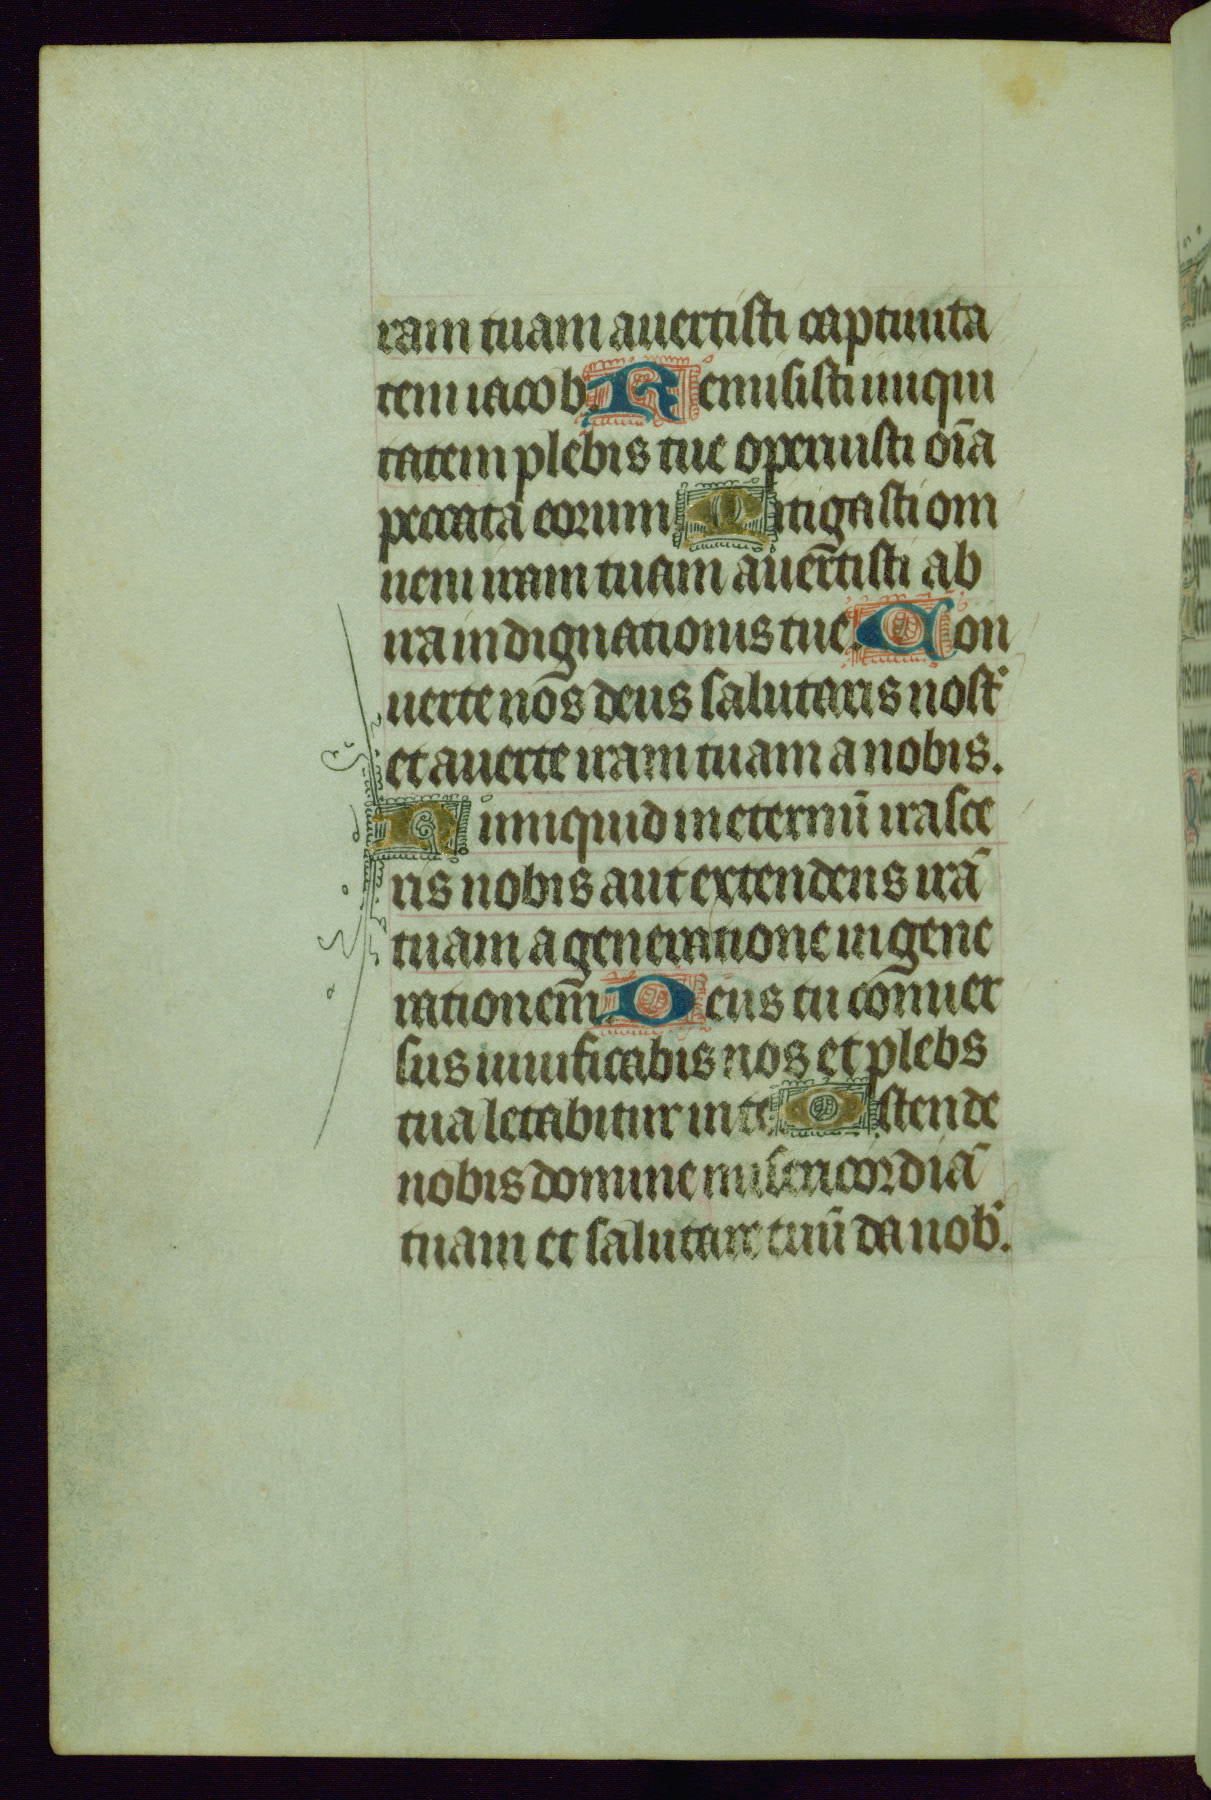 ram tuam auertisti captiuita
tem iacob. Remisisti iniqui
tatem plebis tue operuisti oi̅a
peccata eorum Mitigasti om
nem iram tuam auertisti ab
ira indignationis tue. Con
uerte nos deus salutaris nost̉
et auerte iram tuam a nobis.
Nunquid in eternu̅ irasce
ris nobis aut extendens ira̅
tuam a generatione in gene
rationem. Deus tu conuer
sus uiuificabis nos et plebs
tua letabitur in te Ostende
nobis domine misericordia̅
tuam et salutare tuu̅ da nob̉.